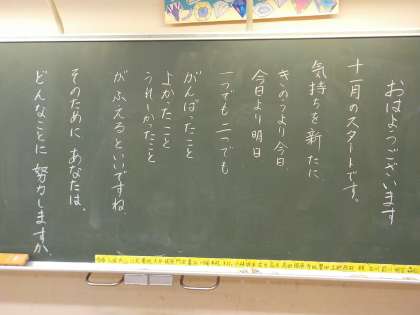 おはようございます
十一月のスタートです。
気持ちを新たに
きのうより今日
今日より明日
一つでも二つでも
がんばったこと
よかったこと
うれしかったこと
がふえるといいですね
そのために あなたは、
どんなことに 努力しますか